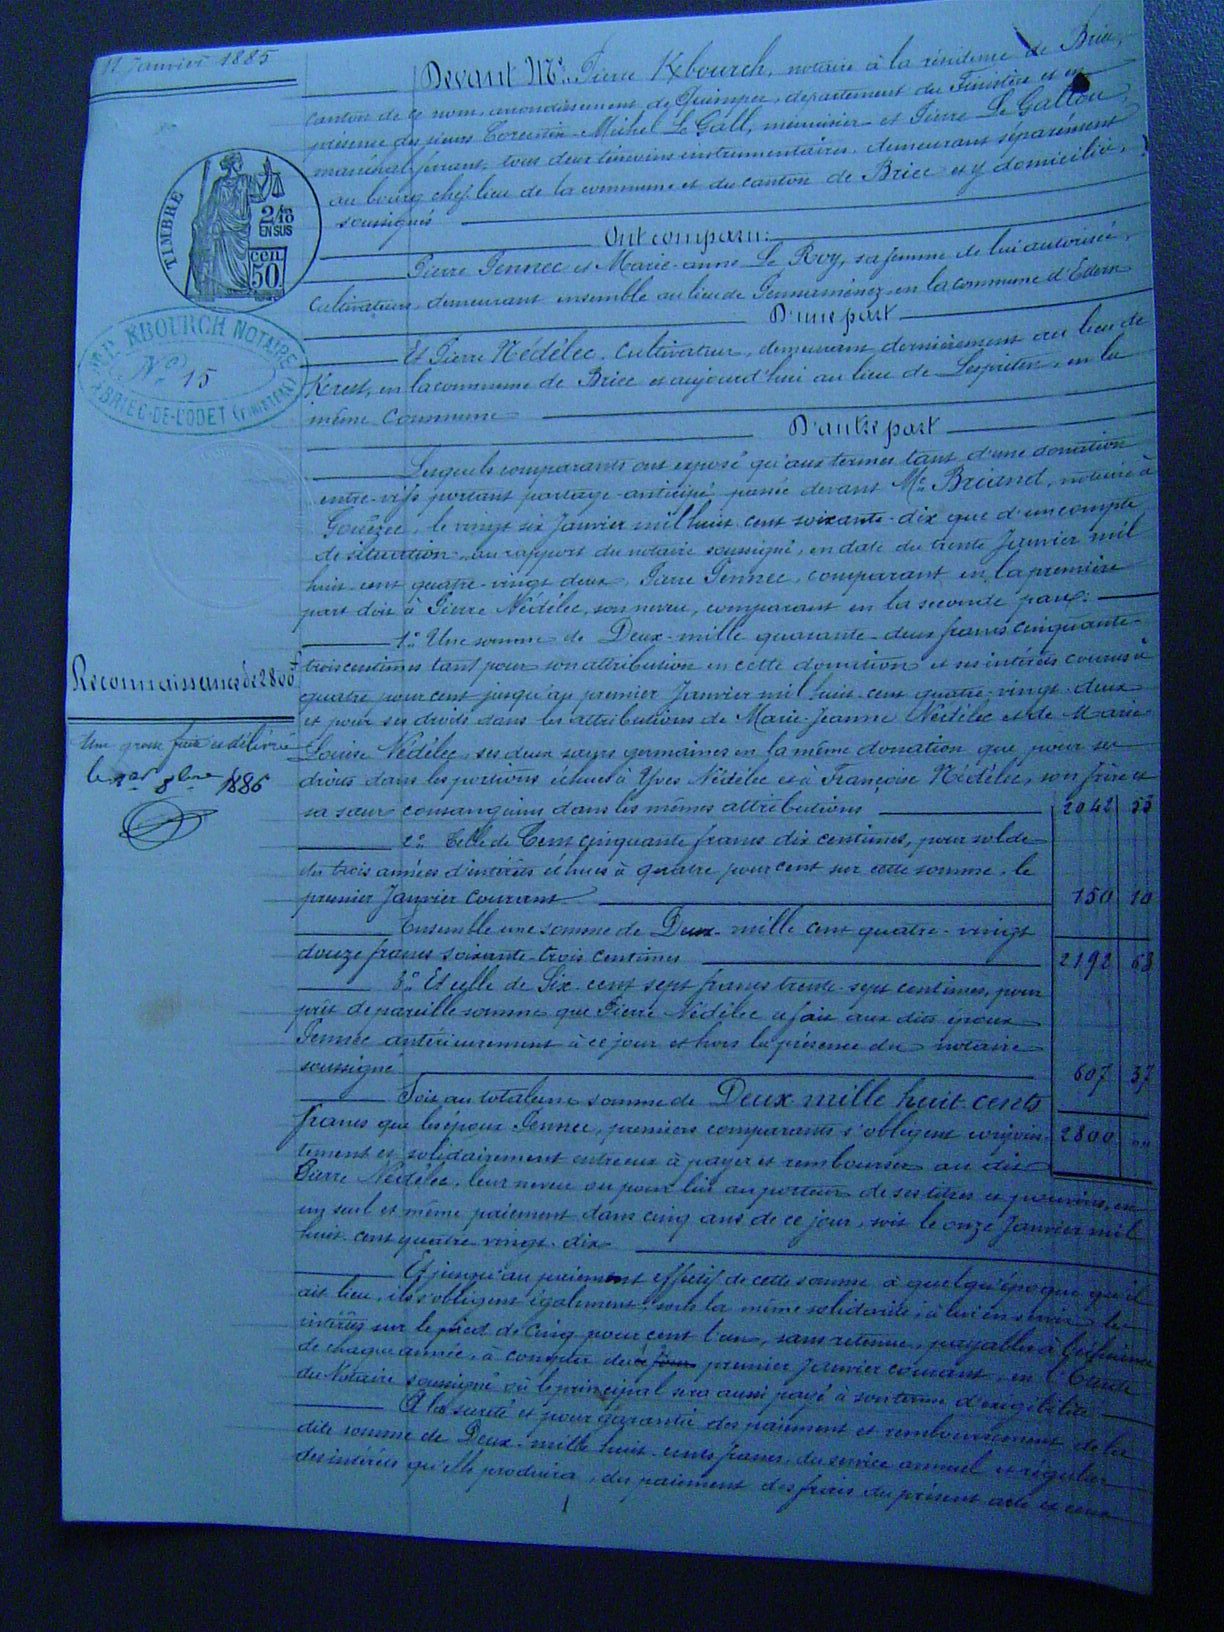 11 Janvier 1885
Devant Me. Pierre Kbourch, notaire à la résidence de Briec,
canton de ce nom, arrondissement de Quimper, département du Finistère et en
présence des sieurs Corentin Michel Le Gall, menuisier et Pierre Le Gallou
maréchal ferrant, tous deux témoins instrumentaires, demeurant séparément
au bourg chef-lieu de la commune et du canton de Briec et y domiciliés,
soussignés
TIMBRE
2/10
EN SUS
50 cen
Ont comparu:
Pierre Pennec et Marie-anne Le Roy, sa femme de lui autorisée,
cultivateurs, demeurant ensemble au lieu de en la commune d'Edern
D'une part
Me P. KBOURCH NOTAIRE
No 15
BRIEC-DE-L'ODET (FINISTERE)
Et Pierre Nédélec, cultivateur, demeurant dernièrement au lieu de
Krest, en la commune de Briec et aujourd'hui au lieu de en la
même commune
D'autre part
Lesquels comparants ont exposé qu'aux termes tant d'une donation
entre-vifs portant partage anticipé passée devant Me Briand, notaire à
Gouézec, le vingt six Janvier mil huit cent soixante-dix que d'un compte
de situation au rapport du notaire soussigné, en date du trente Janvier mil
huit cent quatre-vingt deux, Pierre Pennec, comparant en la première
part doit à Pierre Nédélec, son neveu, comparant en la seconde part:
1o. Une somme de Deux-mille quarante-deux francs cinquante-
Reconnaissance de 2800f
trois centimes tant pour son attribution en cette donation et ses intérêts courus à
quatre pour cent jusqu'au premier Janvier mil huit cent quatre-vingt-deux
et pour ses droits dans les attributions de Marie-Jeanne Nédélec et de Marie
Une grosse faite et délivrée
le 1er 8bre 1886
Louise Nédélec, ses deux sœurs germaines en la même donation que pour ses
droits dans les portions échues à Yves Nédélec et à Françoise Nédélec, son frère et
sa sœur consanguins dans les mêmes attributions 2042 53
2o. Celle de Cent cinquante francs dix centimes, pour solde
des trois années d'intérêts échues à quatre pour cent sur cette somme, le
premier Janvier courant 150 10
Ensemble une somme de Deux-mille cent quatre-vingt
douze francs soixante-trois centimes 2192 63
3o. Et celle de Six cent sept francs trente-sept centimes, pour
prêt de pareille somme que Pierre Nédélec a fait aux dits époux
Pennec antérieurement à ce jour et hors la présence du notaire
soussigné 607 37
Soit au total une somme de Deux mille huit cents
francs que les époux Pennec, premiers comparants s'obligent conjoin- 2800 "
tement et solidairement entre eux à payer et rembourser au dit
Pierre Nédélec, leur neveu ou pour lui au porteur de ses titres et pouvoirs, en
un seul et même paiement dans cinq ans de ce jour, soit le onze Janvier mil
huit cent quatre vingt-dix
Et jusqu'au paiement effectif de cette somme à quelqu'époque qu'il
ait lieu, ils s'obligent également, sous la même solidarité, à lui en servir les
intérêts sur le pied de Cinq pour cent l'an, sans retenue, payables à
de chaque année, à compter du premier Janvier courant, en l'Etude
du Notaire soussigné où le principal sera aussi payé à son terme d'exigibilité
A la sureté et pour garantie des paiement et remboursement de la
dite somme de Deux-mille huit cents francs, du service annuel et régulier
des intérêts qu'elle produira, du paiement des frais du présent acte et ceux